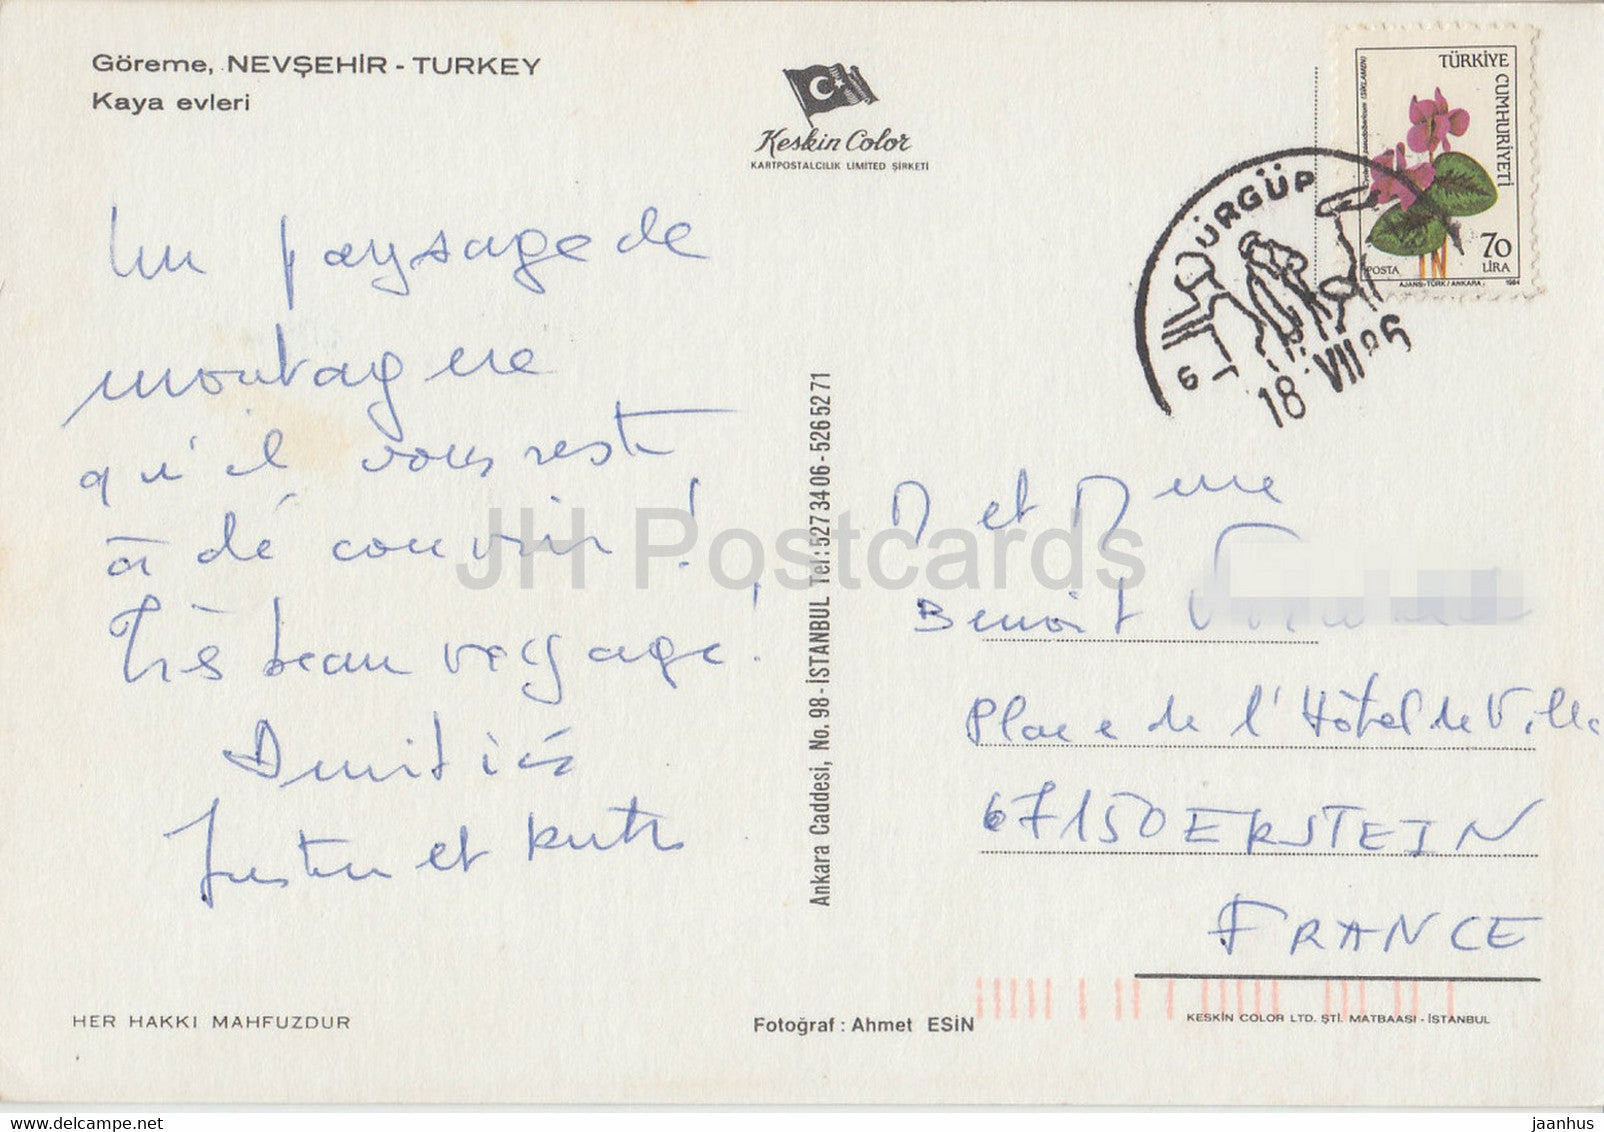 Göreme, NEVŞEHİR - TURKEY
Kaya evleri
Keskin Color
KARTPOSTALCILIK LIMITED ŞİRKETİ
TÜRKİYE CUMHURİYETİ
70 LİRA
POSTA
AJANS-TÜRK / ANKARA
1984
ÜRGÜP
18 VII 86
Un paysage de
montagne
qu'il vous reste
à découvrir !
Très beau voyage !
Amitiés
et Ruth
Ankara Caddesi, No. 98 - İSTANBUL Tel : 527 34 06 - 526 52 71
M et Mme
Benoît
Place de l'Hôtel de Ville
67150 ERSTEIN
FRANCE
HER HAKKI MAHFUZDUR
Fotoğraf : Ahmet ESİN
KESKİN COLOR LTD. ŞTİ. MATBAASI - İSTANBUL
JH Postcards
www.delcampe.net
jaanhus